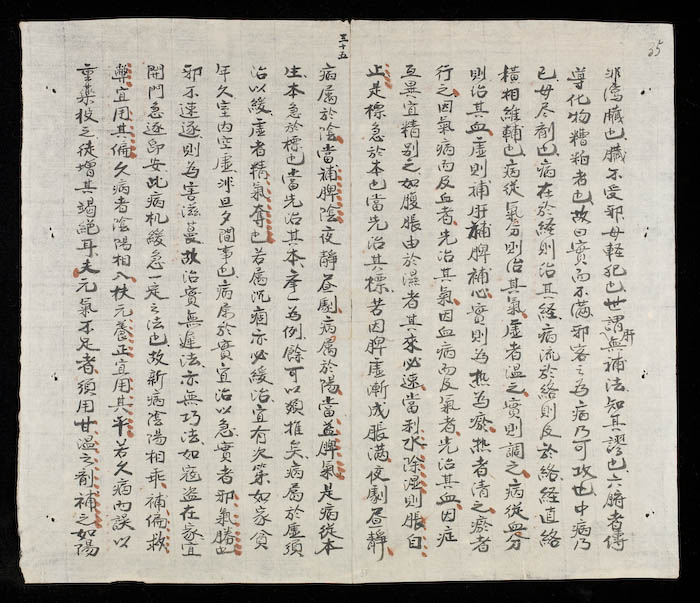 25
邪瀉臟也臟不受邪毋輕犯也世謂肝無補法知其謬也六腑者傳
導化物糟粕者也故曰實而不滿邪客之為病乃可攻也中病乃
已毋尽剤也病在於経則治其経病流於絡則及於絡経直絡
橫相維輔也病從氣分則治其氣虛者温之實則調之病從血分
則治其血虛則補肝補脾補心實則為热為瘀热者清之瘀者
行之因氣病而及血者先治其氣因血病而及氣者先治其血因症
互異宜精别之如腹脹由於湿者其來必速當利水除湿則脹自
止是標急於本也當先治其標若因脾虛漸成脹满夜劇昼静
三十五
病属於陰當補脾陰夜靜昼劇病属於陽當益脾氣是病從本
生本急於標也當先治其本序一為例餘可以類推矣病属於虛須
治以緩虛者精氣奪也若属沉痼亦必緩治宜有次第如家貧
年久室内空虛非旦夕間事也病属於實宜治以急實者邪氣勝也
邪不速逐則為害滋蔓故治實無遲法亦無巧法如寇盗在家宜
開門急逐即安此病机緩急一定之法也故新病陰陽相乖補偏救
弊宜用其偏久病者陰陽相入扶元養正宜用其平若久病而誤以
重薬投之徒增其竭絕耳夫元氣不足者須用甘温之剤補之如陽